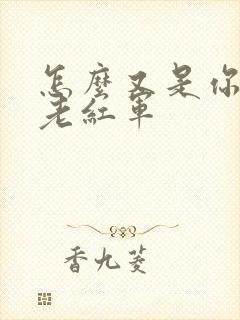 怎麼又是你
老紅軍
香九菱